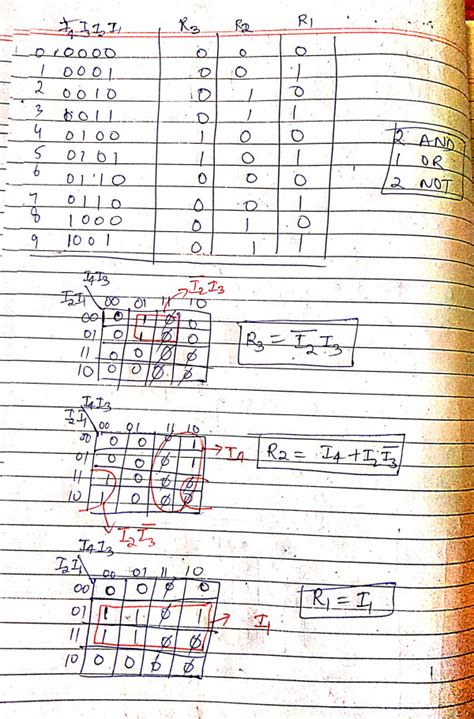 I4 I3 I2 I1 R3 R2 R1
0 0000 0 0 0
1 0001 0 0 1
2 0010 0 1 0
3 0011 0 1 1
4 0100 1 0 0
5 0101 1 0 1
6 0110 0 0 0
7 0110 0 0 1
8 1000 0 1 0
9 1001 0 1 1
2 AND
1 OR
2 NOT
I4I3
I̅2I3
I2I1 00 01 11 10
00 0 1 Ø 0
01 0 1 Ø 0
11 0 0 Ø Ø
10 0 0 Ø Ø
R3 = I̅2 I3
I4I3
I2I1 00 01 11 10
00 0 0 Ø 1
01 0 0 Ø 1
11 1 0 Ø Ø
10 1 0 Ø Ø
I4
R2 = I4 + I2 I̅3
I2 I̅3
I4I3
I2I1 00 01 11 10
00 0 0 Ø 0
01 1 1 Ø 1
11 1 1 Ø Ø
10 0 0 Ø Ø
I1
R1 = I1